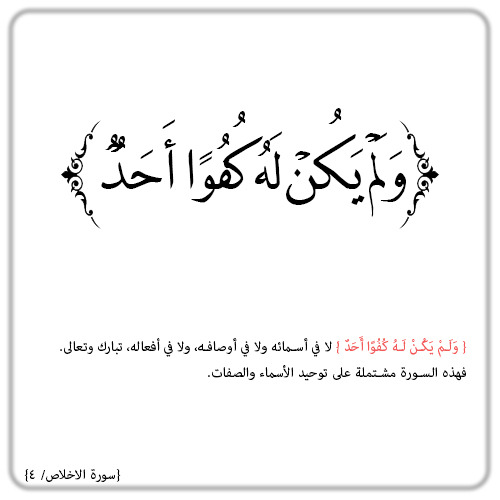 وَلَمْ يَكُنْ لَهُ كُفُوًا أَحَدٌ
{ وَلَـمْ يَكُـنْ لَـهُ كُفُوًا أَحَدٌ } لا في أسـمائه ولا في أوصافـه، ولا في أفعاله، تبارك وتعالى.
فهذه السـورة مشـتملة على توحيد الأسماء والصفات.
{سورة الاخلاص/ ٤}